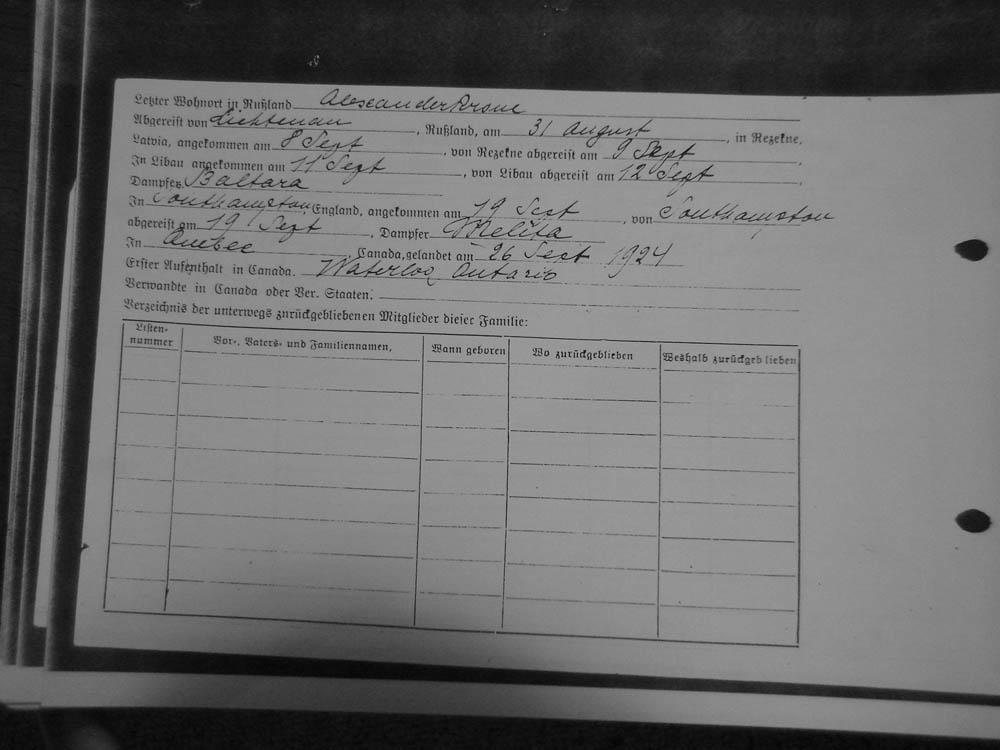 Letzter Wohnort in Rußland Alexanderkrone
Abgereist von Lichtenau, Rußland, am 31 August, in Rezekne,
Latvia, angekommen am 8 Sept, von Rezekne abgereist am 9 Sept,
In Libau angekommen am 11 Sept, von Libau abgereist am 12 Sept,
Dampfer Baltara
In Southampton, England, angekommen am 19 Sept, von Southampton
abgereist am 19 Sept, Dampfer Melita
In Quebec Canada, gelandet am 26 Sept 1924
Erster Aufenthalt in Canada. Waterloo, Ontario
Verwandte in Canada oder Ver. Staaten:
Verzeichnis der unterwegs zurückgebliebenen Mitglieder dieser Familie:
Listen-nummer Vor-, Vaters- und Familiennamen, Wann geboren Wo zurückgeblieben Weshalb zurückgeblieben